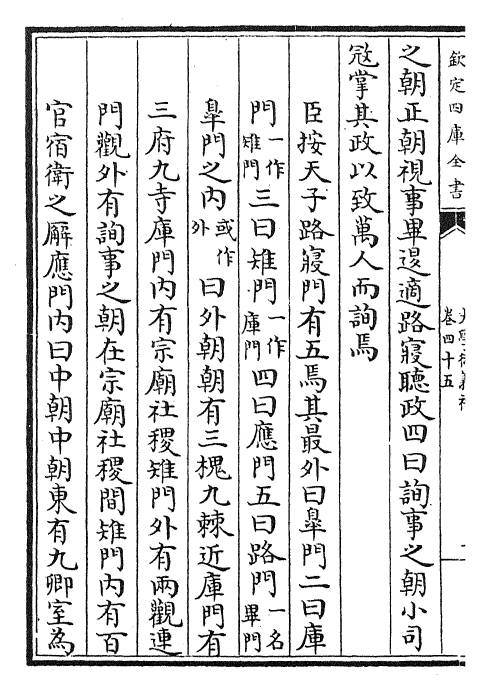 欽定四庫全書
卷四十五
之朝正朝視事畢退適路寢聽政四曰詢事之朝小司
宼掌其政以致萬人而詢焉
臣按天子路寢門有五焉其最外曰臯門二曰庫
門一作雉門三曰雉門一作庫門四曰應門五曰路門一名畢門
臯門之內或作外曰外朝朝有三槐九棘近庫門有
三府九寺庫門內有宗廟社稷雉門外有兩觀連
門觀外有詢事之朝在宗廟社稷間雉門內有百
官宿衛之廨應門內曰中朝中朝東有九卿室為